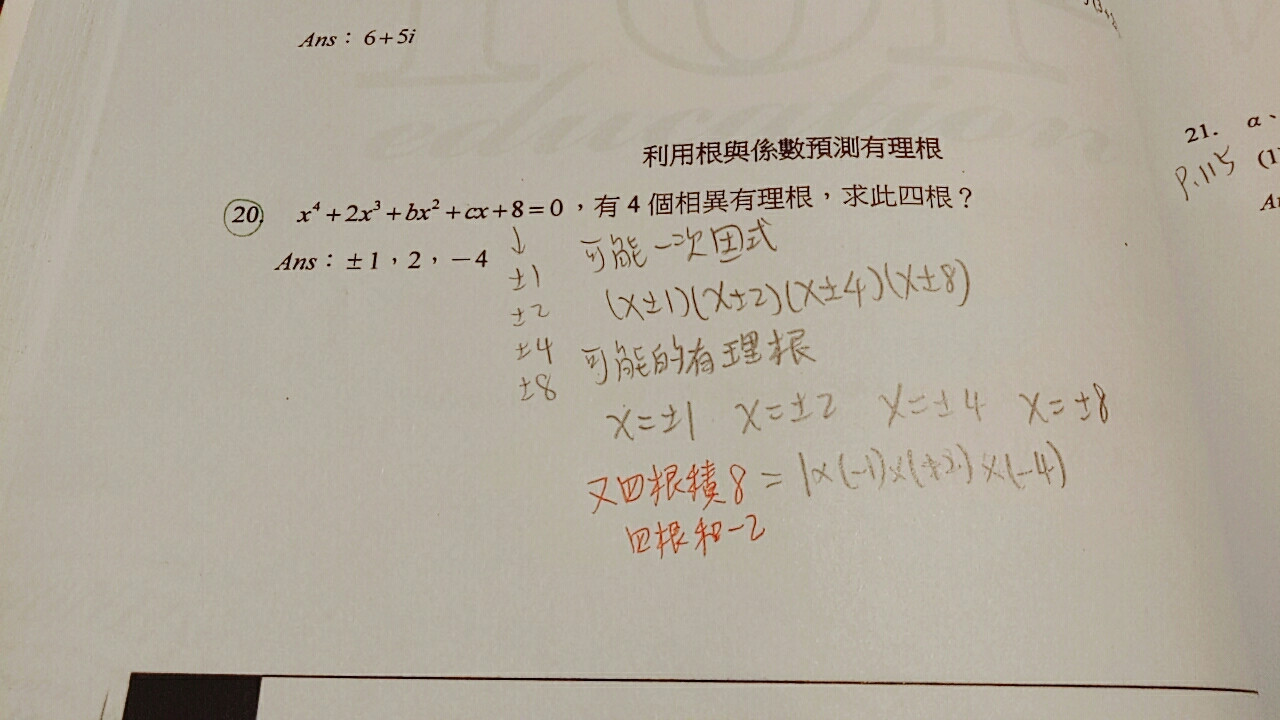 Ans：6+5i
利用根與係數預測有理根
20. x⁴+2x³+bx²+cx+8=0，有 4 個相異有理根，求此四根？
Ans：±1，2，−4
↓
±1
±2
±4
±8
可能一次因式
(x±1)(x±2)(x±4)(x±8)
可能的有理根
x=±1 x=±2 x=±4 x=±8
又四根積8 = 1×(-1)×(+2)×(-4)
四根和-2
21. α、
P.115
(1
education